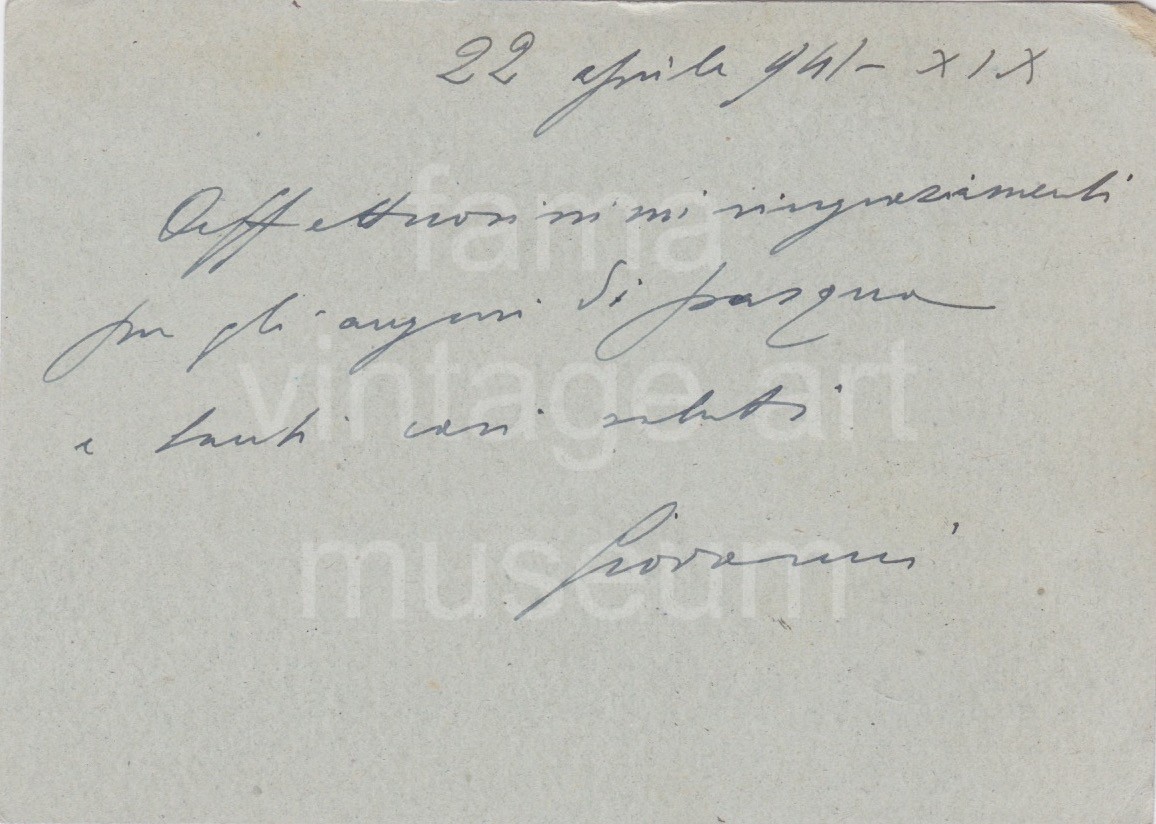 22 aprile 941 - XIX
Affettuosissimi ringraziamenti
per gli auguri di pasqua
e tanti cari saluti
Giovanni
fama
vintage art
museum